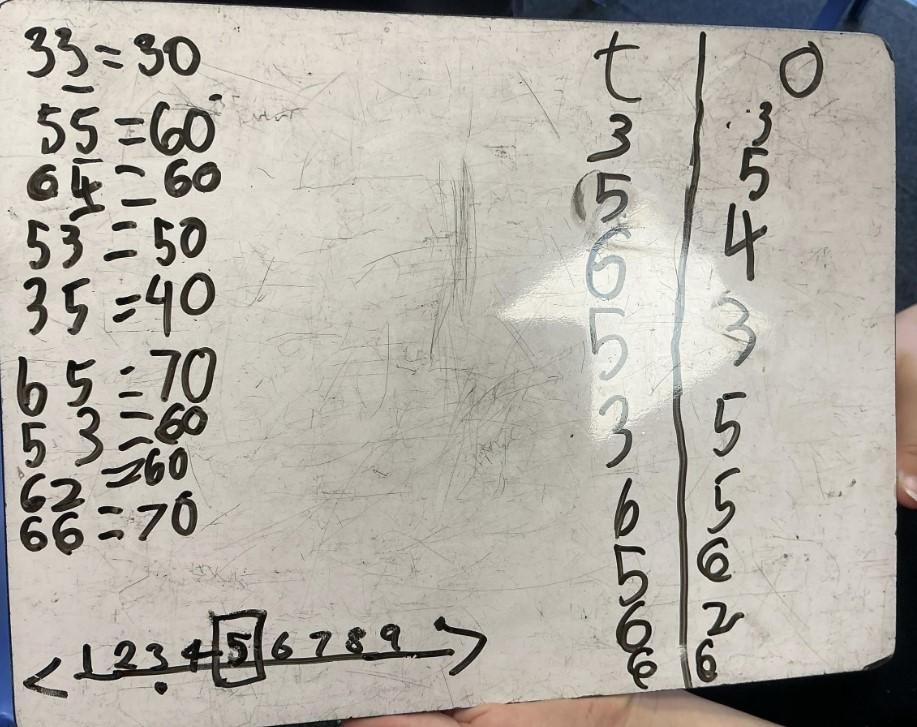 33 = 30
55 = 60
64 = 60
53 = 50
35 = 40
65 = 70
53 = 60
62 = 60
66 = 70
t | O
3 | 3
5 | 5
6 | 4
5 | 3
3 | 5
6 | 5
5 | 6
6 | 2
6 | 6
1 2 3 4 5 6 7 8 9